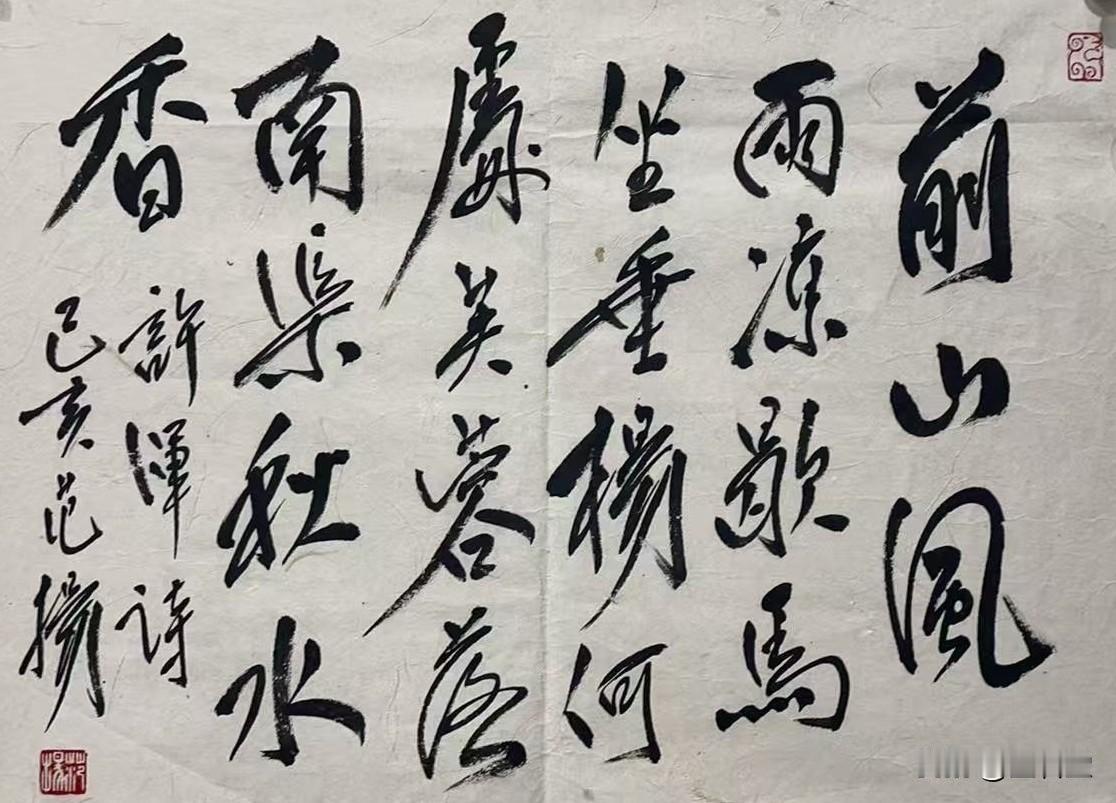 前山風
雨凉歇馬
坐垂楊何
處芙蓉落
南渠秋水
香
許渾詩
己亥范揚
范揚